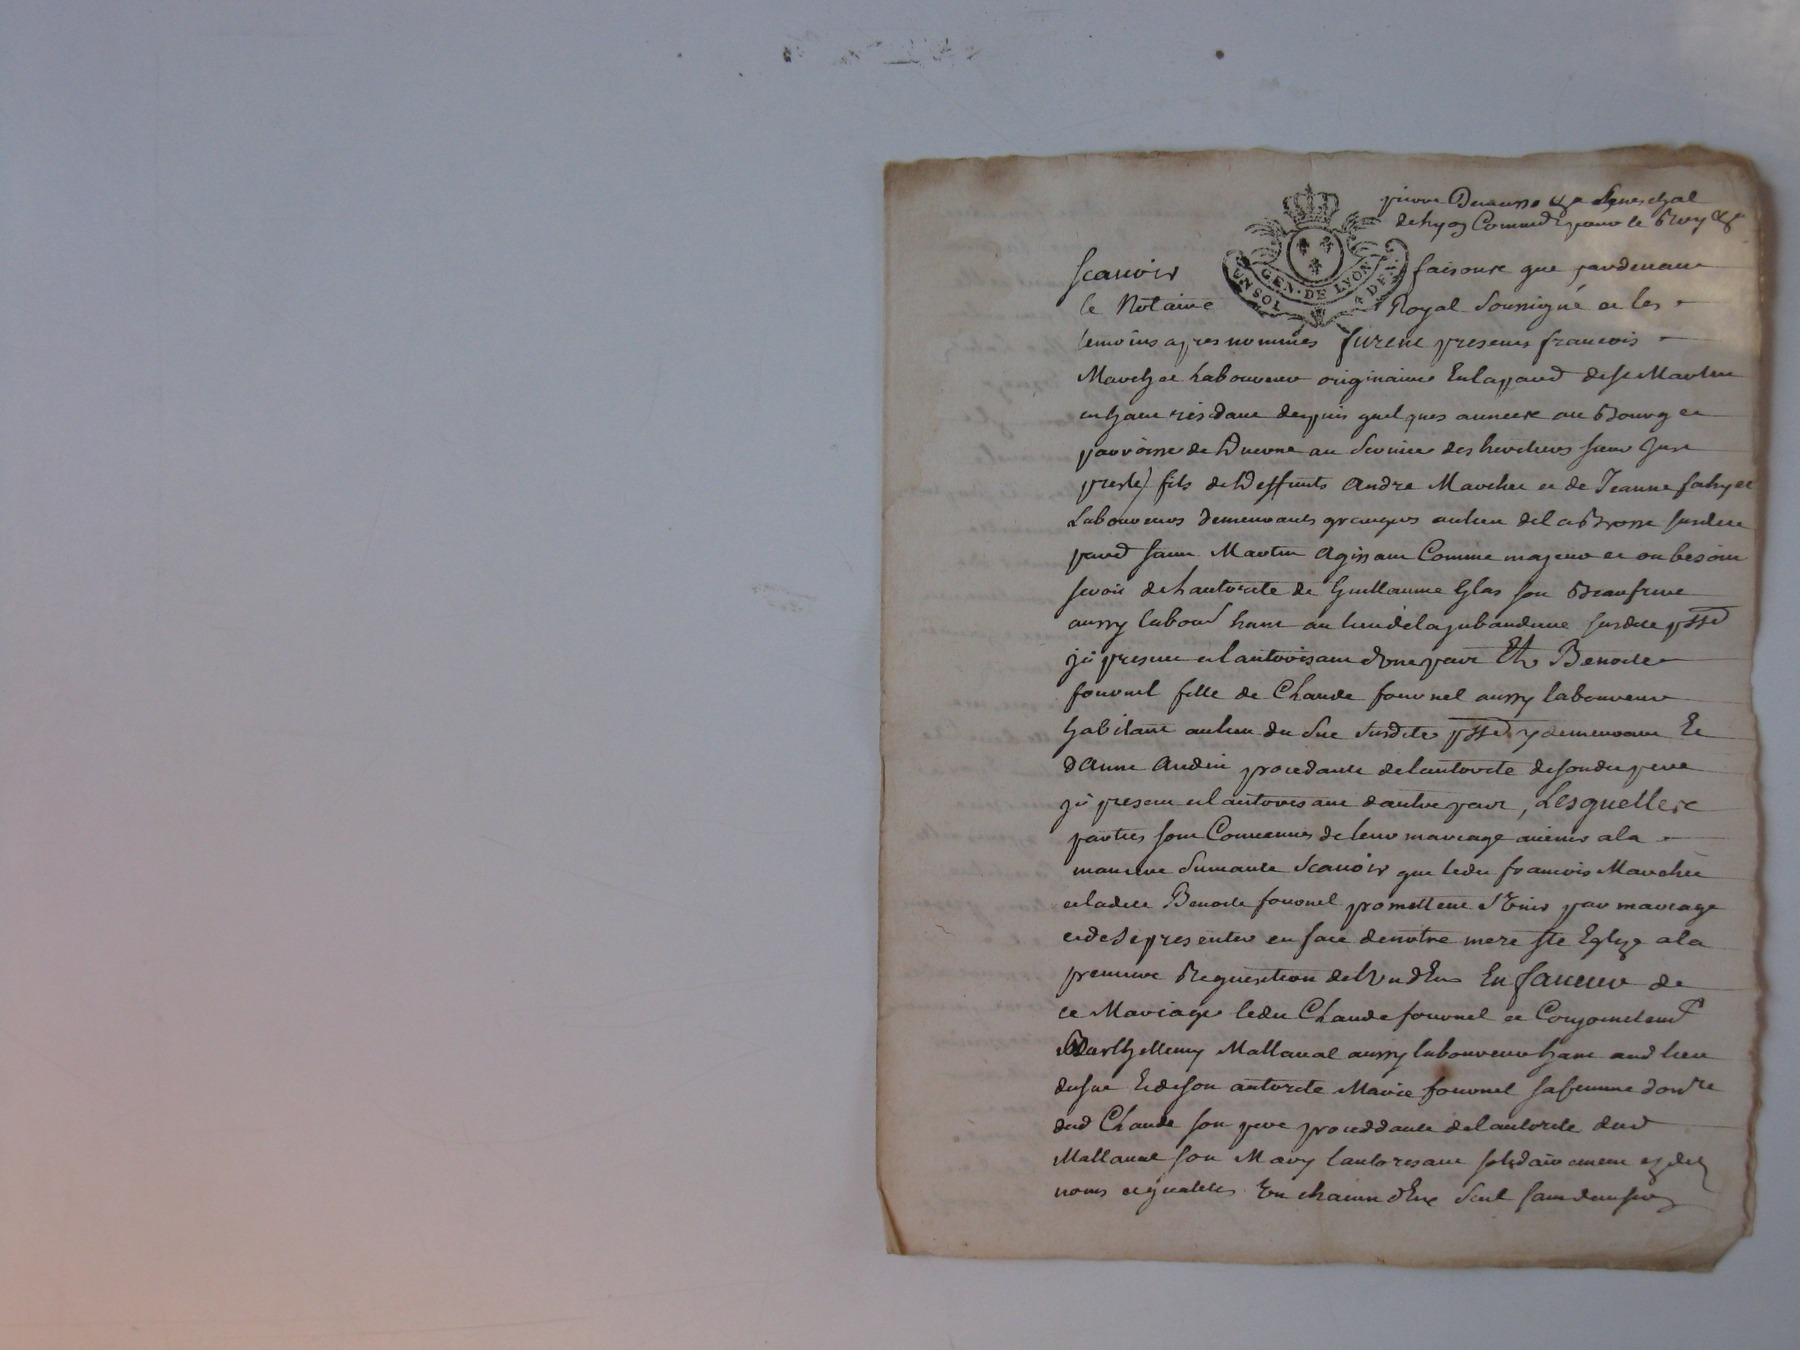 pierre Du &a Seneschal
de lyon Commd pour le Roy &a
Scauoir faisons que pardeuant
GEN. DE LYON
UN SOL 4 DEN.
le Notaire Royal Soussigné et les
temoins apres nommés furent presents francois
Marcheé Laboureur originaire En la parred de st Martin
en haut residant depuis quelques anneés au Bourg et
parroisse de Duerne au Seruice des heritiers just
fils de Deffunts André Marcheé et de Jeanne
Laboureurs demeurants grangers au lieu de la Brosse susditte
parred saint Martin Agissant Comme majeur et ou besoin
seroit de l'autorite de Guillaume Glas son Beaufrere
aussy labour hant au lieu de la susditte psse
jci present et l'autorisant d'une part Et Benoite
fournel fille de Claude fournel aussy laboureur
habitant au lieu du Suc Susdite psse y demeurant Et
d'Anne Audin procedante de l'autorité de sondit pere
jci present et l'autorisant d'autre part, Lesquelles
parties sont Conuenues de leur mariage auenir a la
maniere Suiuante Scauoir que ledit francois Marcheé
et ladite Benoite fournel promettent s'Unir par mariage
et de se presenter en face de notre mere ste Eglize a la
premiere Requisition de l'Un d'Eux En faueur de
ce Mariage ledit Claude fournel et Conjointemt
Barthellemy Mallaual aussy laboureur hant aud lieu
du Suc Et de son autorité Marie fournel sa femme
dud Claude son pere proceddante de l'autorité dud
Mallaual son Mary l'autorisant solidairement
noms et qualités Un chacun d'Eux Seul